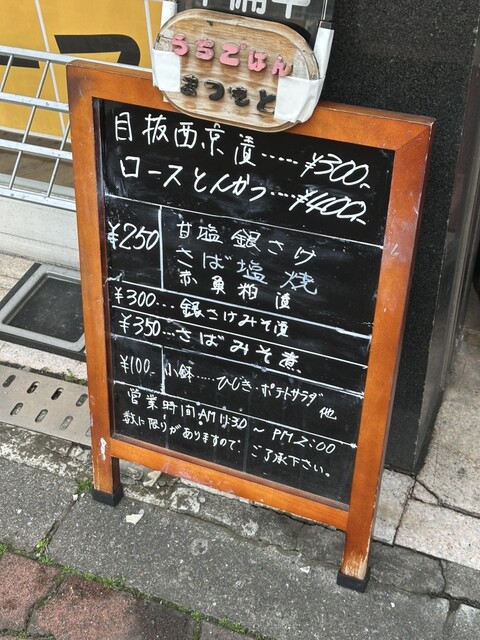 準備中
うちごはん
まつもと
目抜西京漬……¥300-
ロースとんかつ……¥400-
¥250
甘塩銀さけ
さば塩焼
赤魚粕漬
¥300…銀さけみそ漬
¥350…さばみそ煮
¥100-
小鉢……ひじき・ポテトサラダ他
営業時間AM11:30～PM2:00
数に限りがありますので、ご了承下さい。